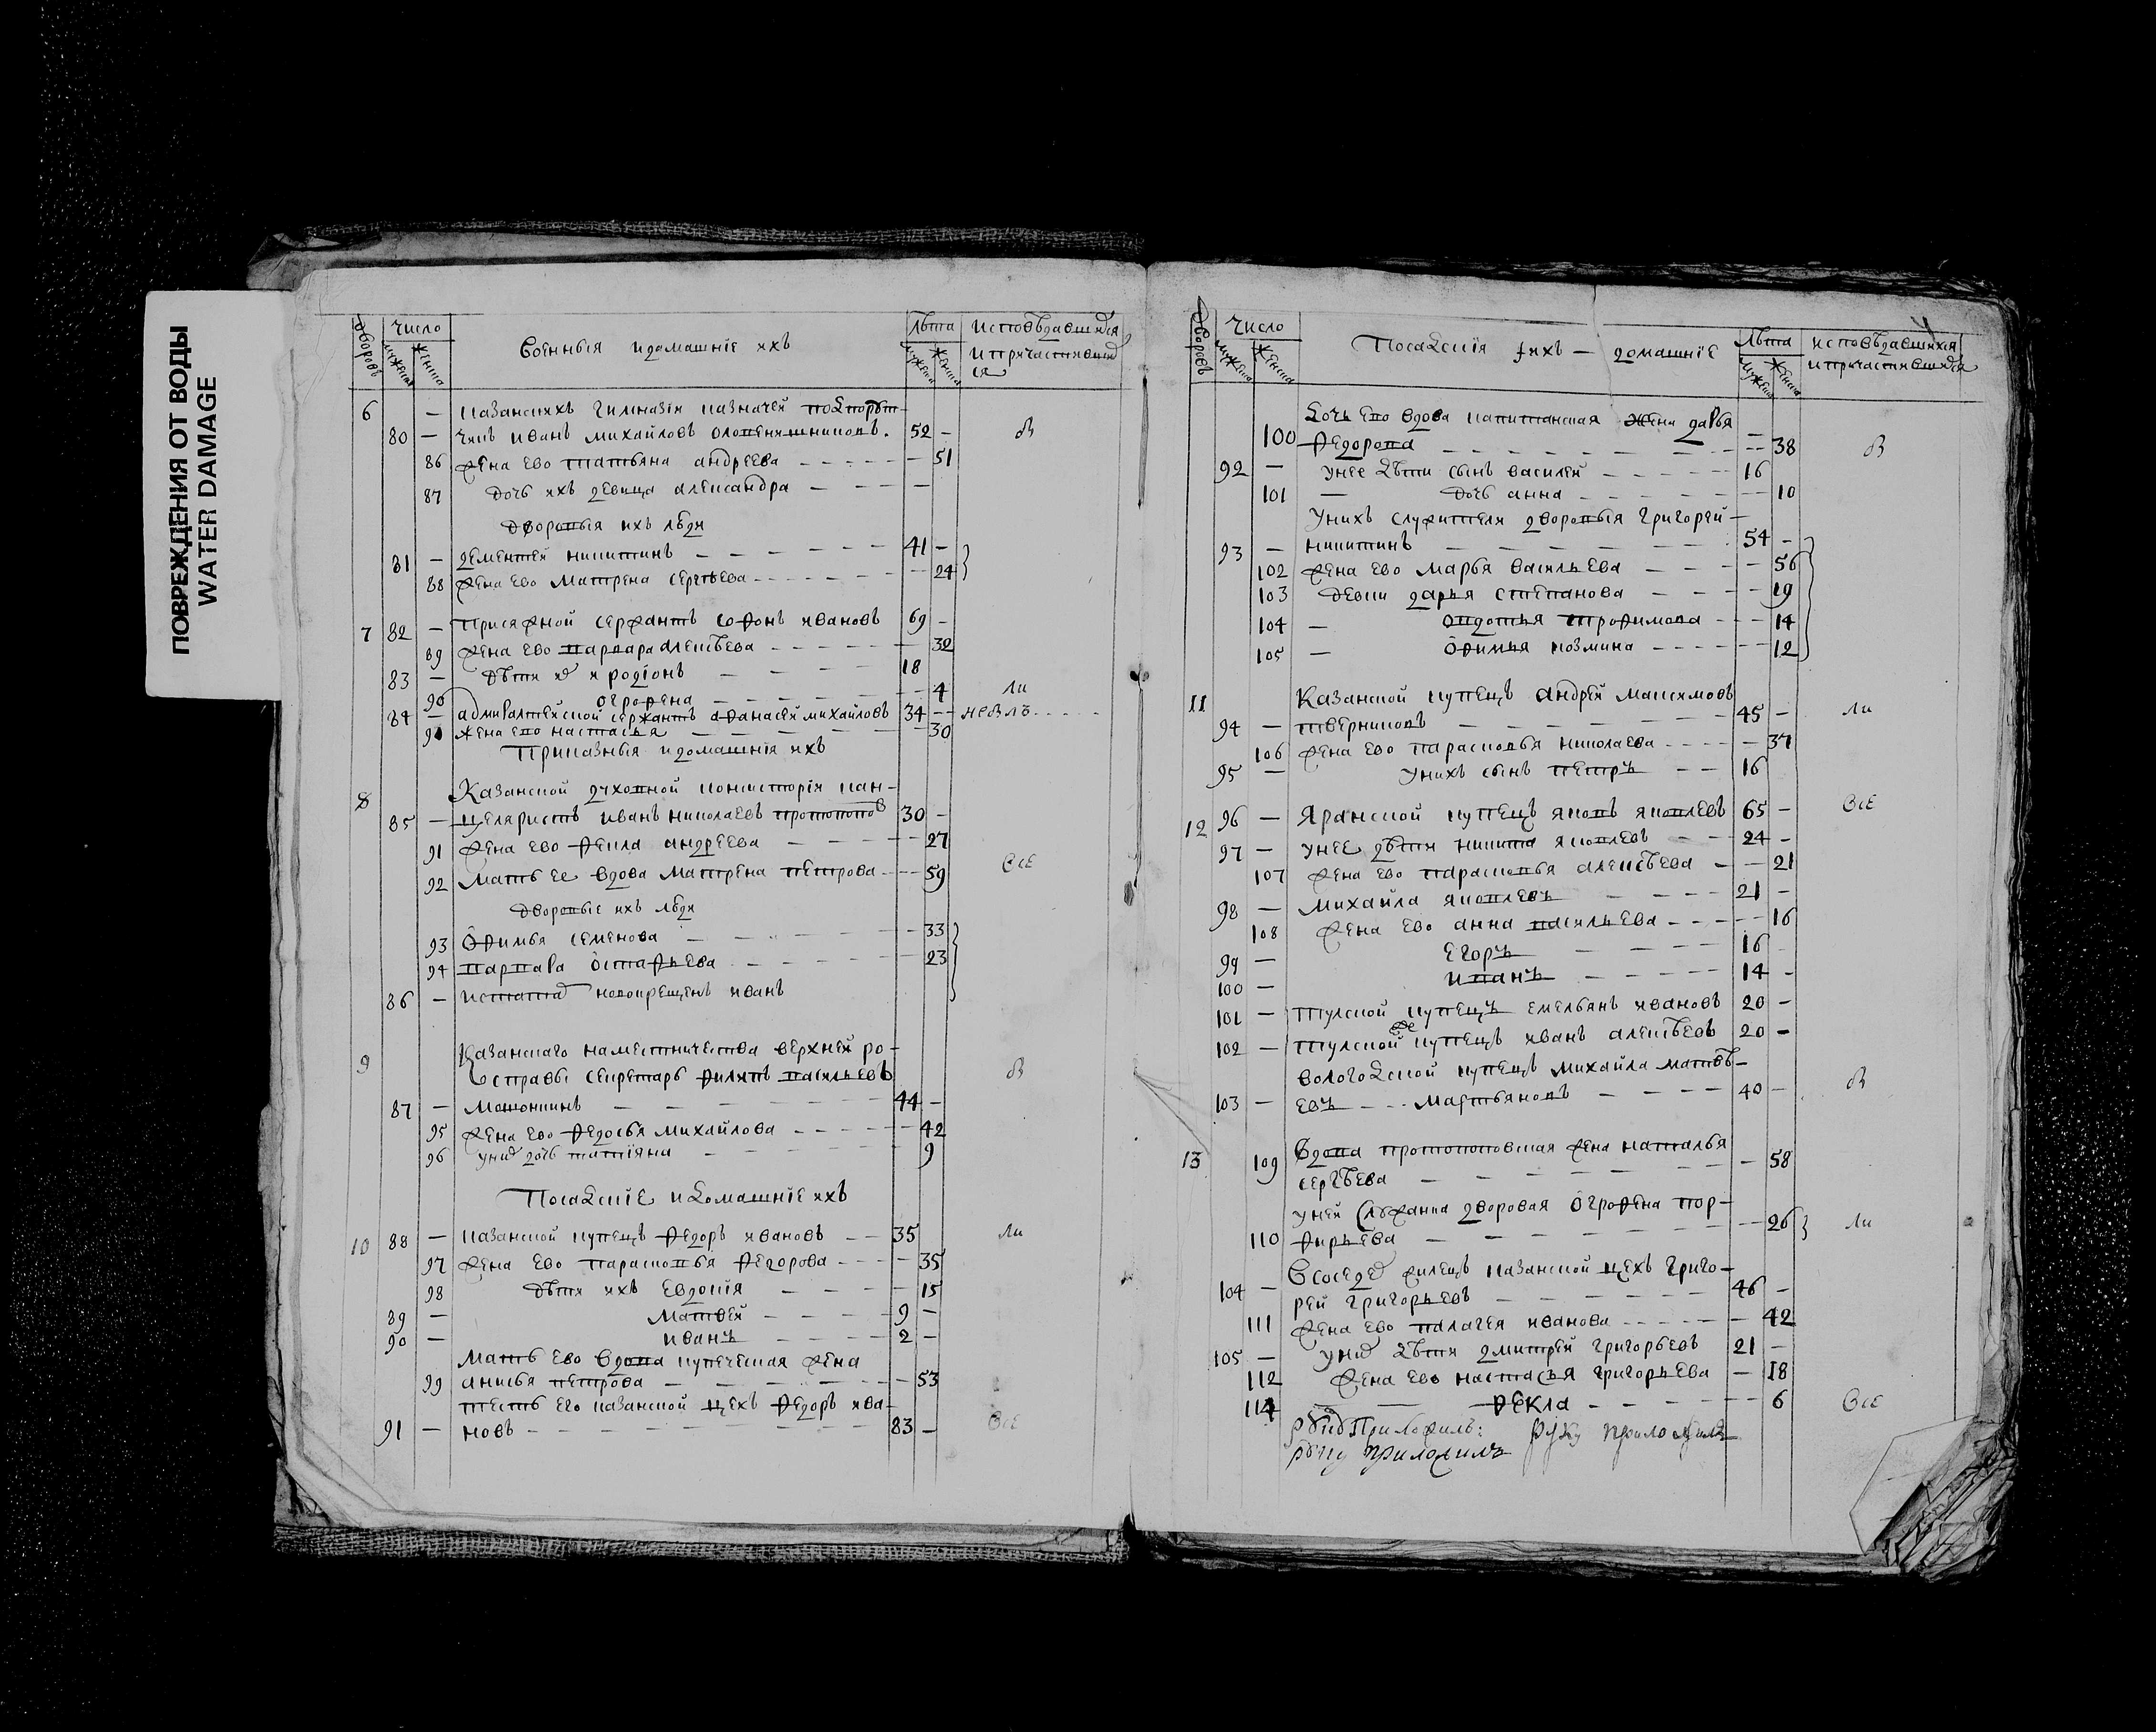 ПОВРЕЖДЕНИЯ ОТ ВОДЫ
WATER DAMAGE
дворовъ Число мужеска женска Военныя и домашніе ихъ Лѣта мужеска женска исповѣдавшихся и причастившихся
6 — казанскихъ гимназіи казначей подпорут-
80 — чикъ иванъ михайловъ — 52 — В
86 жена ево татьяна андреева — 51
87 дочь ихъ девица александра —
дворовыя ихъ люди
81 — дементей никитинъ — 41 —
88 жена ево матрена сергѣева — 24
7 82 — присяжной сержантъ софонъ ивановъ 69 —
89 жена ево варвара алексѣева — 32
83 — дѣти родіонъ — 18
90 огрофена — 4 Ли
84 — адмиралтейской сержантъ афанасей михайловъ 34 —
91 жена ево настасья — 30
Приказныя и домашнія ихъ
8 Казанской духовной консисторіи кан-
85 — целяристъ иванъ николаевъ протопопов 30 —
91 жена ево фекла андреева — 27
92 мать ее вдова матрена петрова — 59 Все
дворовые ихъ люди
93 офимья семенова — 33
94 варвара остафьева — 23
86 — новокрещенъ иванъ
9 Казанскаго наместничества верхней ро-
справы секретарь филипъ васильевъ В
87 — — 44 —
95 жена ево федосья михайлова — 42
96 у них дочь татіяна — 9
Посадскіе и домашніе ихъ
10 88 — казанской купецъ федоръ ивановъ — 35 Ли
97 жена ево парасковья федорова — 35
98 дѣти ихъ евдокія — 15
89 — матвей — 9 —
90 — иванъ — 2 —
мать ево вдова купеческая жена
99 анисья петрова — 53
тесть его казанской цехъ федоръ ива-
91 — новъ — 83 — Все
дворовъ Число мужеска женска Посадскія и ихъ — домашніе Лѣта мужеска женска исповѣдавшихся и причастившихся
дочь ево вдова капитанская жена дарья
100 федорова — 38 В
92 — у нее дѣти сынъ василей — 16
101 — дочь анна — 10
у нихъ служители дворовыя григорей
93 — никитинъ — 54 —
102 жена ево марья васильева — 56
103 девки дарья степанова — 19
104 — овдотья трофимова — 14
105 — офимья козмина — 12
11 Казанской купецъ андрей максимовъ
94 — тверниковъ — 45 — Ли
106 жена ево парасковья николаева — 37
95 — у нихъ сынъ петръ — 16
12 96 — Яранской купецъ яковъ яковлевъ 65 — Все
97 — у нее дѣти никита яковлевъ — 24 —
107 жена ево парасковья алексѣева — 21
98 — михайла яковлевъ — 21 —
108 жена ево анна васильева — 16
99 — егоръ — 16
100 — иванъ — 14 —
101 — тулской купецъ емельянъ ивановъ 20 —
102 — тулской купецъ иванъ алексѣевъ 20 —
вологодской купецъ михайла матвѣ-
103 — евъ — мартьяновъ — 40 — В
13 109 Вдова протопоповская жена наталья
сергѣева — 58
у ней служанка дворовая огрофена пор-
110 фирьева — 26 Ли
В соседех жилецъ казанской цехъ григо-
104 — рей григорьевъ — 46 —
111 жена ево палагея иванова — 42
105 — у них дѣти дмитрей григорьевъ 21 —
112 жена ево настасья григорьева — 18
114 — фекла — 6 Все
Приложилъ: руку приложилъ
руку приложилъ